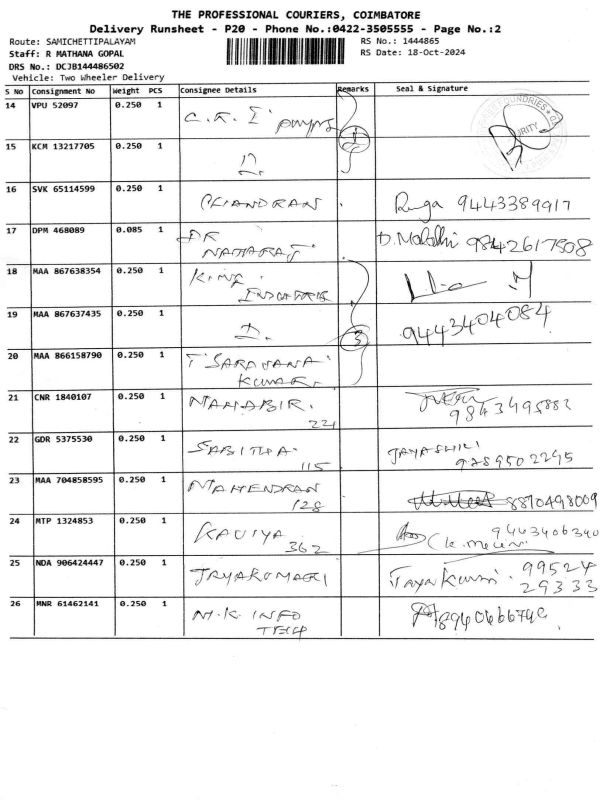 THE PROFESSIONAL COURIERS, COIMBATORE
Delivery Runsheet - P20 - Phone No.:0422-3505555 - Page No.:2
Route: SAMICHETTIPALAYAM
RS No.: 1444865
Staff: R MATHANA GOPAL
RS Date: 18-Oct-2024
DRS No.: DCJB144486502
Vehicle: Two Wheeler Delivery
S No Consignment No Weight PCS Consignee Details Remarks Seal & Signature
14 VPU 52097 0.250 1
15 KCM 13217705 0.250 1
16 SVK 65114599 0.250 1 CHANDRAN 9443389917
17 DPM 468089 0.085 1 DR NATARAJ 9842617508
18 MAA 867638354 0.250 1 KING
19 MAA 867637435 0.250 1 9443404084
3
20 MAA 866158790 0.250 1 T SARAVANA KUMAR
21 CNR 1840107 0.250 1 MAHABIR. 221 9843495882
22 GDR 5375530 0.250 1 SABITHA 115 JAYASHRI 9789502295
23 MAA 704858595 0.250 1 MAHENDRAN 128 8870498009
24 MTP 1324853 0.250 1 KAVIYA 362 9443406340
25 NDA 906424447 0.250 1 JAYAKUMARI 99524 29333
26 MNR 61462141 0.250 1 M.K. INFO TECH